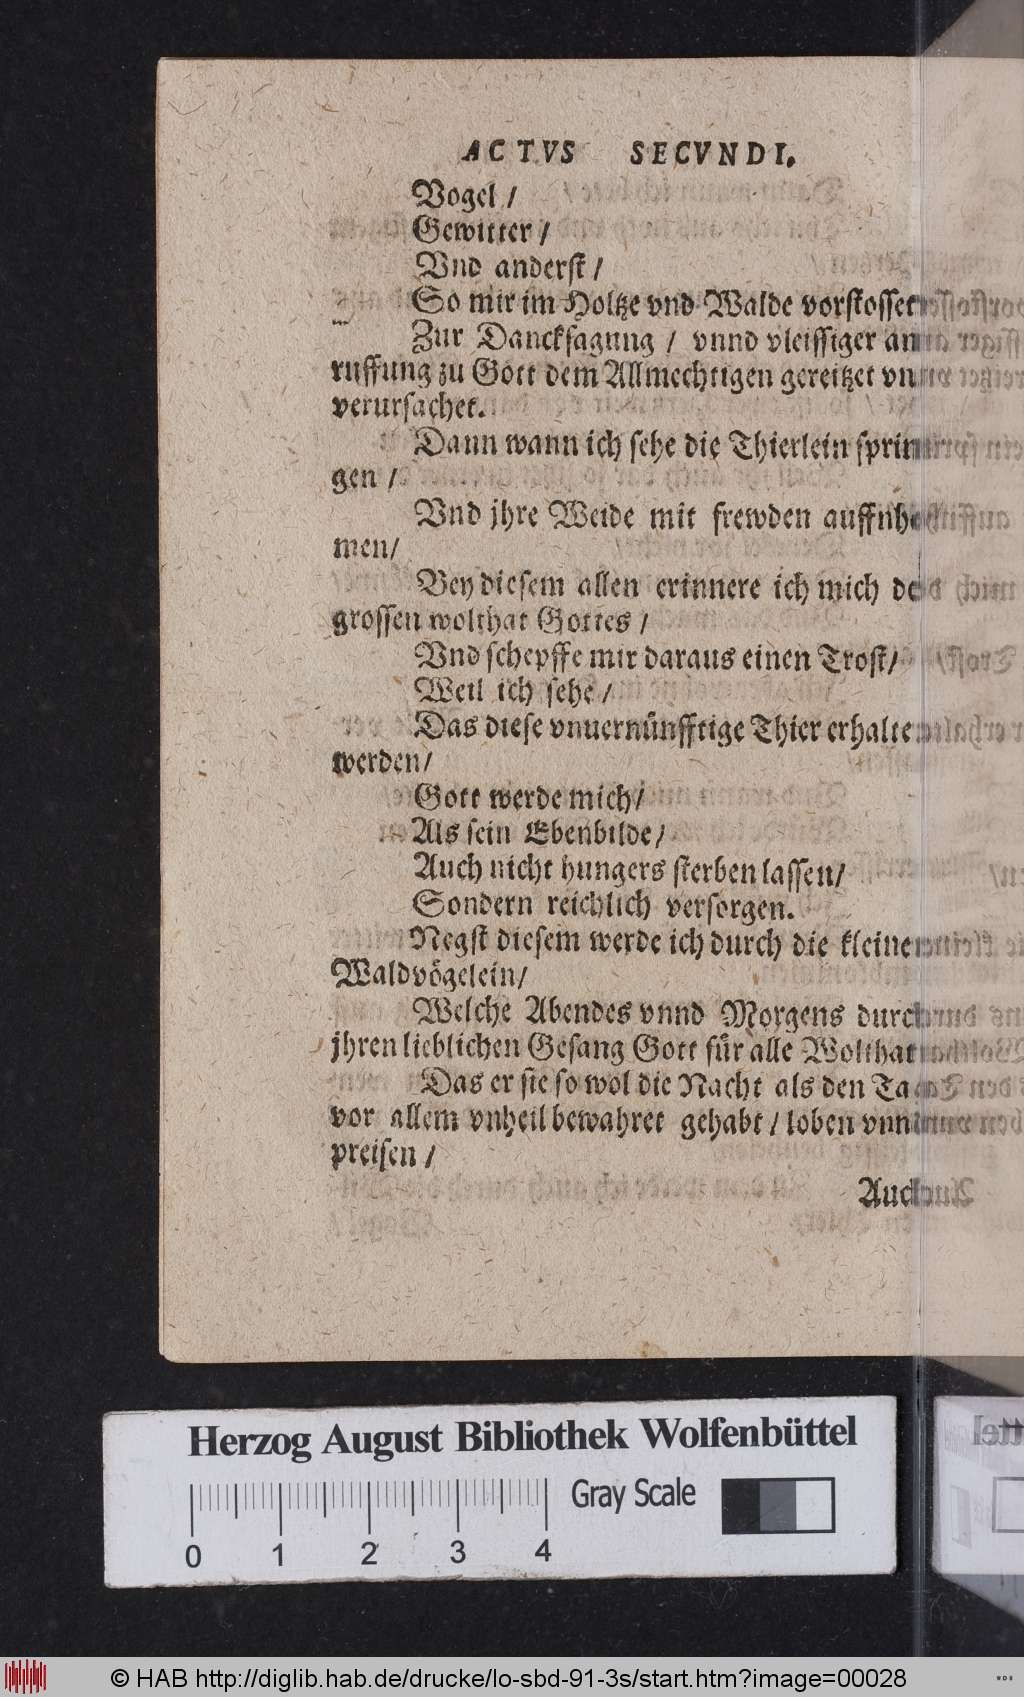 ACTVS SECVNDI.
Vogel /
Gewitter /
Vnd anderst /
So mir im Holtze vnd Walde vorstosset
Zur Dancksagung / vnnd vleissiger an
ruffung zu Gott dem Allmechtigen gereitzet vn
verursachet.
Dann wann ich sehe die Thierlein sprin
gen /
Vnd jhre Weide mit frewden auffnhe
men/
Bey diesem allen erinnere ich mich de
grossen wolthat Gottes /
Vnd schepffe mir daraus einen Trost/
Weil ich sehe /
Das diese vnuernünfftige Thier erhalte
werden/
Gott werde mich/
Als sein Ebenbilde/
Auch nicht hungers sterben lassen/
Sondern reichlich versorgen.
Negst diesem werde ich durch die kleine
Waldvögelein/
Welche Abendes vnnd Morgens durch
jhren lieblichen Gesang Gott für alle Wolthat
Das er sie so wol die Nacht als den Ta
vor allem vnheil bewahret gehabt / loben vnn
preisen /
Auch
Herzog August Bibliothek Wolfenbüttel
Gray Scale
0 1 2 3 4
© HAB http://diglib.hab.de/drucke/lo-sbd-91-3s/start.htm?image=00028